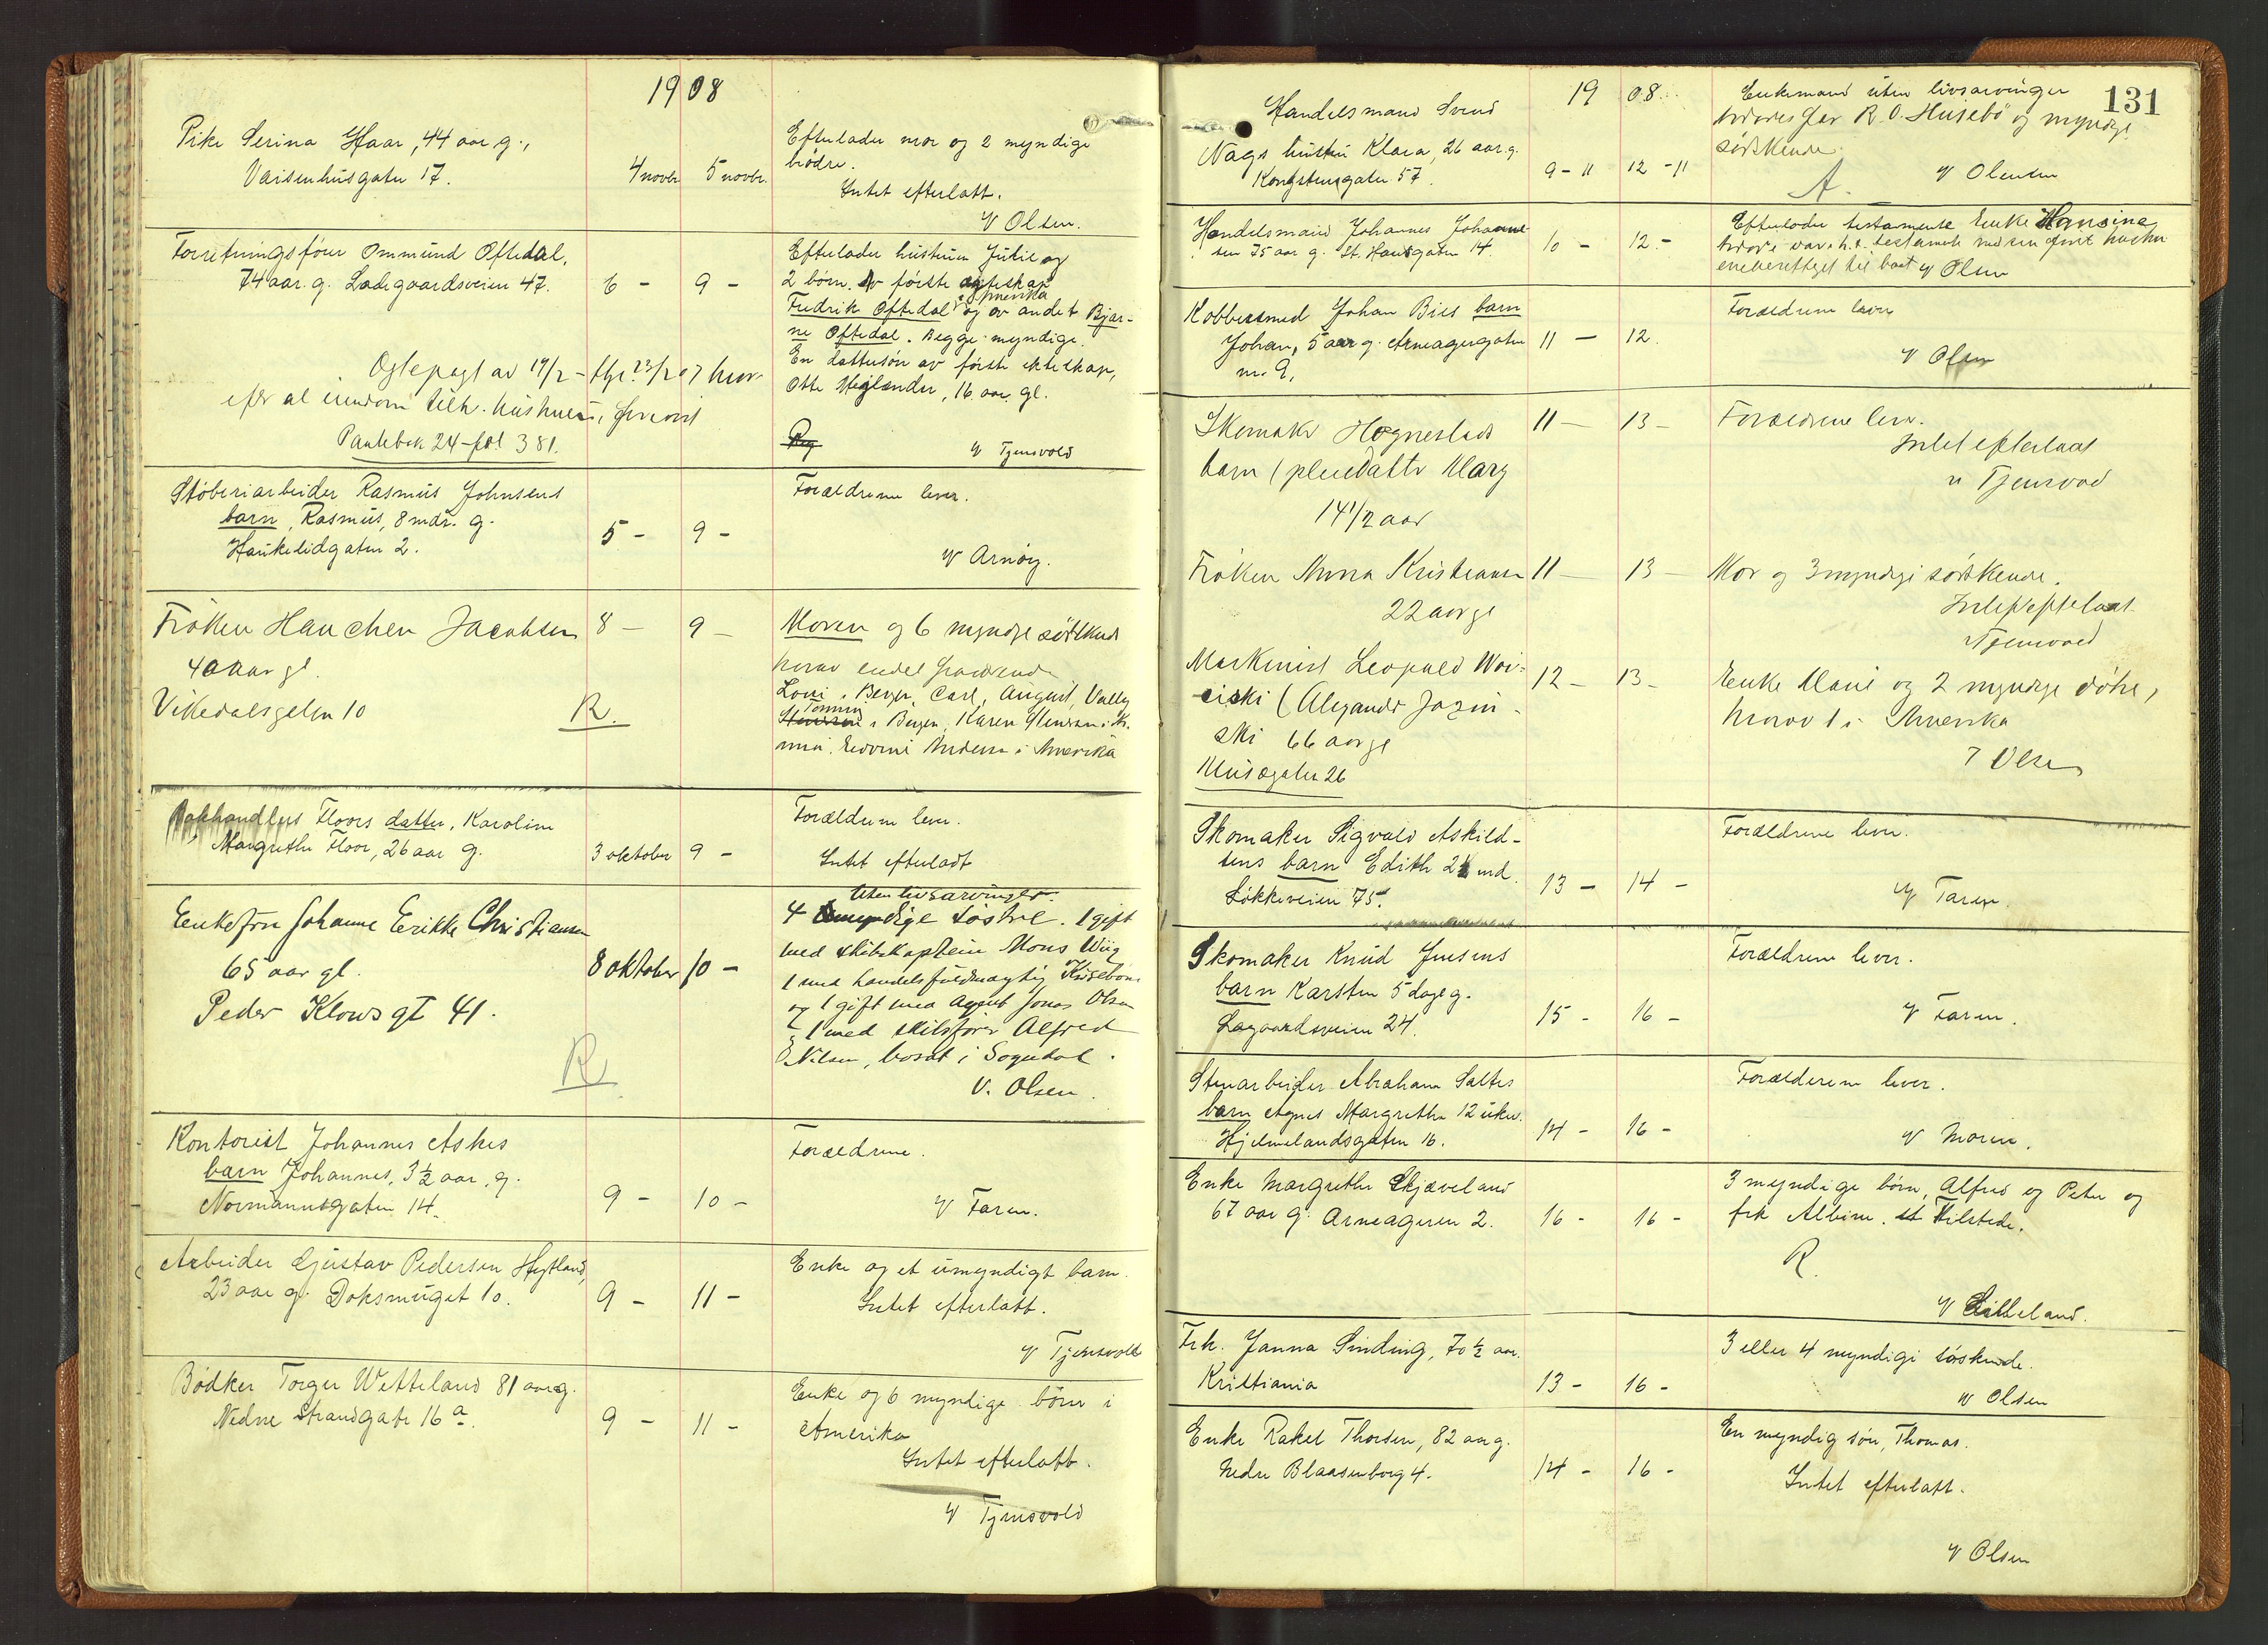 1908
Pike Serina Haar, 44 aar g.,
Vaisenhusgaten 17.
4 novbr. 5 novbr.
Efterlader mor og 2 myndige
brødre.
Intet efterlatt.
V Olsen.
Forretningsfører Ommund Oftedal,
74 aar. g. Ladegaardsveien 47.
6 - 9 -
Efterlader hustruen Julie og
2 børn. Av første egteskap
i Amerika
Fredrik Oftedal og av andet Bjar-
ne Oftedal. Begge myndige.
En dattersøn av første ekteskap,
Otto Meglender, 16 aar gl.
Egtepagt av 19/2 - tlgl. 23/2 07 hvor-
efter al eiendom tilh. hustruens
Pantebok 24 - fol 381.
Reg
V Tjensvold
Støberiarbeider Rasmus Johnsens
barn, Rasmus, 8 mdr. g.
Haukelidgaten 2.
5 - 9 -
Forældrene lever.
V Arnøy.
Frøken Hanchen Jacobsen
40 aar gl.
Vikedalsgaten 10
8 - 9 -
R.
Moren og 6 myndge søskend
hvorav endel fraværende
Loui i Bergen, Carl, August, Vally
Tommy
i Bergen, Karen i K.
Andersen i Amerika
Bokhandlers Floors datter, Karoline
Margrethe Floor, 26 aar g.
3 oktober 9 -
Forældrene lever.
Intet efterladt
Enkefru Johanne Erikke Christiansen
65 aar gl.
Peder Klows gt 41.
8 oktober 10 -
R
Uten livsarvinger.
4 myndige søstre. 1 gift
med skibskaptein Mons Wiig
1 med handelsfuldmægtig
og 1 gift med Agent Jonas Olsen
1 med skibsfører Alfred
E Nilsen, bosat i Sogndal.
V. Olsen.
Kontorist Johannes Askes
barn Johannes, 3 1/2 aar. g.
Normannsgaten 14.
9 - 10 -
Forældrene.
V Faren.
Arbeider Gustav Pedersen Høyland,
23 aar g. Doksmuget 10.
9 - 11 -
Enke og et umyndigt barn.
Intet efterlatt.
V Tjensvold
Bødker Torger Wetteland 81 aar g.
Nedre Strandgate 16 a.
9 - 11 -
Enke og 6 myndige børn i
Amerika
Intet efterlatt.
V Tjensvold
131
19 08.
Handelsmand Svend
Nags hustru Klara, 26 aar g.
Kongstensgaten 57.
9 - 11 12 - 11
Enkemand uten livsarvinger
R. O. Husebø og myndige
søskende.
A.
V Olsen
Handelsmand Johannes Johanne-
sen 75 aar g. St. Hansgaten 14.
10 - 12 -
Efterlader testamente Enke Hansine
V Olsen
Kobbersmed Johan Bies barn
Johan, 5 aar g. Armeagergaten
nr. 9,
11 - 12.
Forældrene lever
V Olsen
Skomaker Hognestads
barn (pleiedatter Mary
14 1/2 aar
11 - 13 -
Forældrene lever.
Intet efterlatt
V Tjensvold
Frøken Anna Kristiansen
22 aar gl
11 - 13 -
Mor og 3 myndige søskende.
Intet efterlaat
V Tjensvold
Maskinist Leopold Woi-
ciski (Alexander Jozin-
ski 66 aar gl
Musegaten 26
12 - 13 -
Enke Marie og 2 myndge døtre,
hvorav 1 i Amerika
V Olsen
Skomaker Sigvald Askild-
sens barn Edith 2 md.
Løkkeveien 75.
13 - 14 -
Forældrene lever.
V Faren.
Skomaker Knud Jensens
barn Karsten 5 dage g.
Lagaardsveien 24.
15 - 16 -
Forældrene lever.
V Faren.
Stenarbeider Abraham Saltes
barn Agnes Margrethe 12 uker.
Hjelmelandsgaten 16.
14 - 16 -
Forælderene lever.
V Moren.
Enke Margrethe Skjæveland
67 aar g. Armeageren 2.
16 - 16 -
3 myndige børn, Alfred og Peter og
frk Albine. Tilstede.
R.
V Lilleland.
Frk. Janna Sinding, 70 1/2 aar.
Kristiania
13 - 16 -
3 eller 4 myndige søskende.
V Olsen
Enke Rakel Thorsen, 82 aar g.
Nedre Blaasenborg 4.
14 - 16 -
En myndig søn, Thomas.
Intet efterlatt.
V Olsen